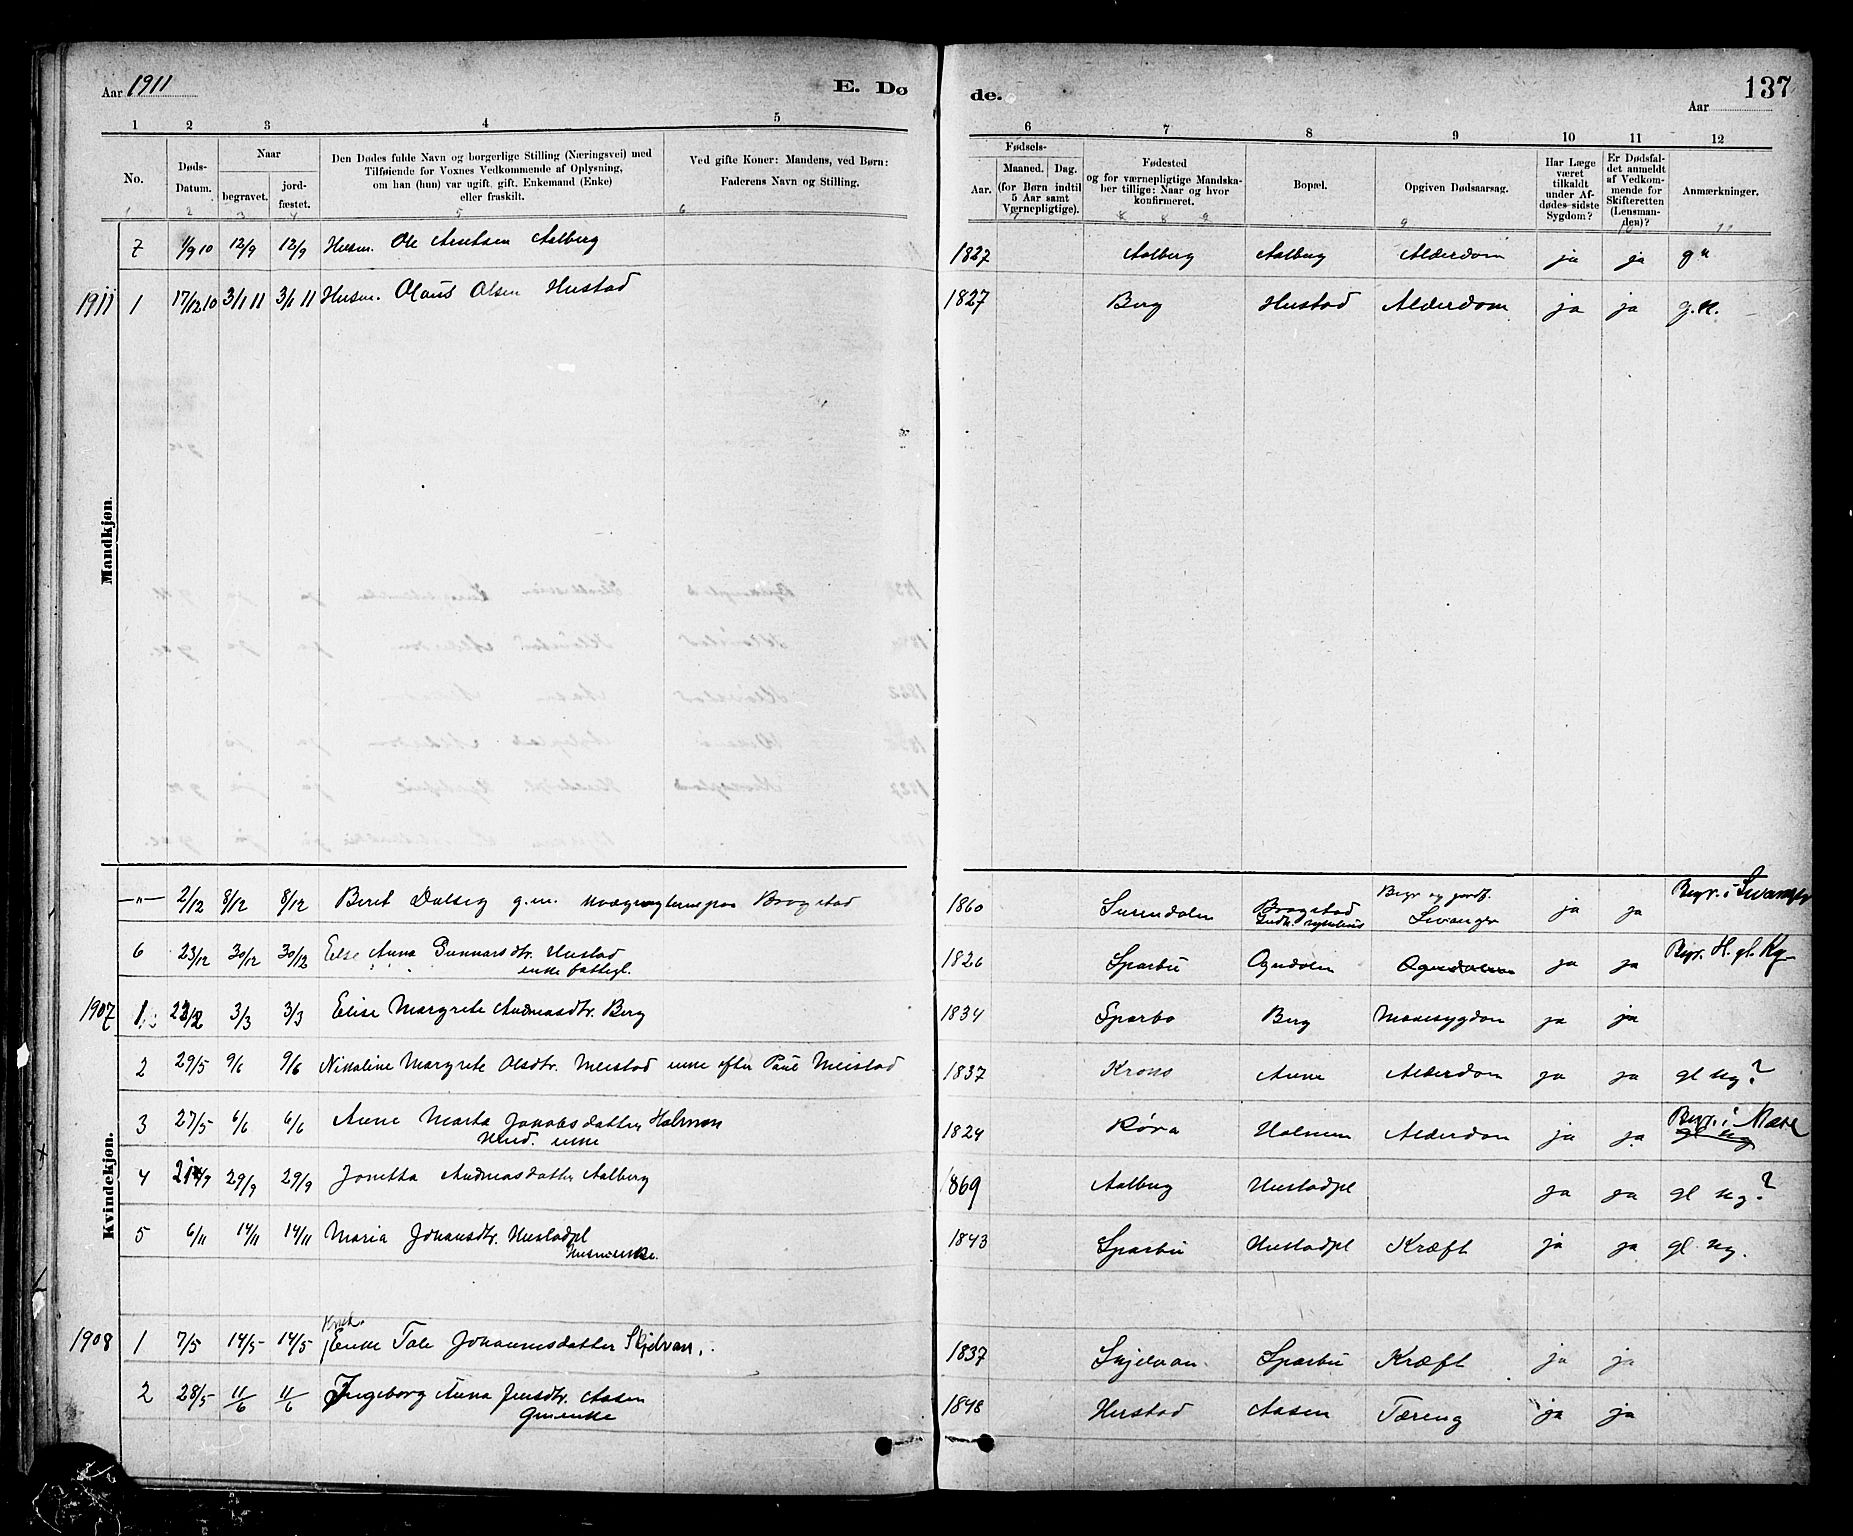 Aar 1911 E. Dø de. Aar 137
1 2 3 4 5 6 7 8 9 10 11 12
No. Døds-Datum. Naar begravet. jord-fæstet. Den Dødes fulde Navn og borgerlige Stilling (Næringsvei) med Tilføiende for Voxnes Vedkommende af Oplysning, om han (hun) var ugift, gift, Enkemand (Enke) eller fraskilt. Ved gifte Koner: Mandens, ved Børn: Faderens Navn og Stilling. Fødsels- Aar. Maaned. Dag. (for Børn indtil 5 Aar samt Værnepligtige). Fødested og for værnepligtige Mandskaber tillige: Naar og hvor konfirmeret. Bopæl. Opgiven Dødsaarsag. Har Læge været tilkaldt under Afdødes sidste Sygdom? Er Dødsfaldet anmeldt af Vedkommende for Skifteretten (Lensmanden)? Anmærkninger.
Mandkjøn.
7 1/9 10 12/9 12/9 Husm. Ole Arntsen Aalberg 1827 Aalberg Aalberg Alderdom ja ja g
1911 1 17/12 10 3/1 11 3/1 11 Husm. Olaus Olsen Hustad 1827 Berg Hustad Alderdom ja ja g.
Kvindekjøn.
—"— 2/12 8/12 8/12 Beret Dalseg g.m. paa Bragstad 1860 Surendalen Bragstad Begr og jordf. Levanger ja ja Begr. i Levanger
6 23/12 30/12 30/12 Else Anna Gunnarsdtr. Hustad enke fattigl. 1826 Sparbu Ogndalen Ogndalen ja ja Begr. H. gl. Kg
1907 1 23/2 3/3 3/3 Elise Margrete Andreasdtr. Berg 1834 Sparbo Berg Mavesygdom ja ja
2 29/5 9/6 9/6 Nikoline Margrete Olsdtr. Meistad enke efter Paul Meistad 1837 Aune Alderdom ja ja gl kg?
3 27/5 6/6 6/6 Anne Marta Jakobsdatter Holmen enke 1824 Røra Holmen Alderdom ja ja Begr. i Mære gl kg
4 21/9 29/9 29/9 Jonetta Andreasdatter Aalberg 1869 Aalberg Hustadpl ja ja gl kg?
5 6/11 14/11 14/11 Maria Johansdtr. Hustadpl Husmenke. 1843 Sparbu Hustadpl Kræft ja ja gl. kg.
1908 1 7/5 14/5 14/5 Enke Tale Johannesdatter Skjelvan. 1837 Skjelvan Sparbu Kræft ja ja
2 28/5 11/6 11/6 Ingeborg Anna Jensdtr. Aasen Gmenke 1848 Hustad Aasen Tæring ja ja